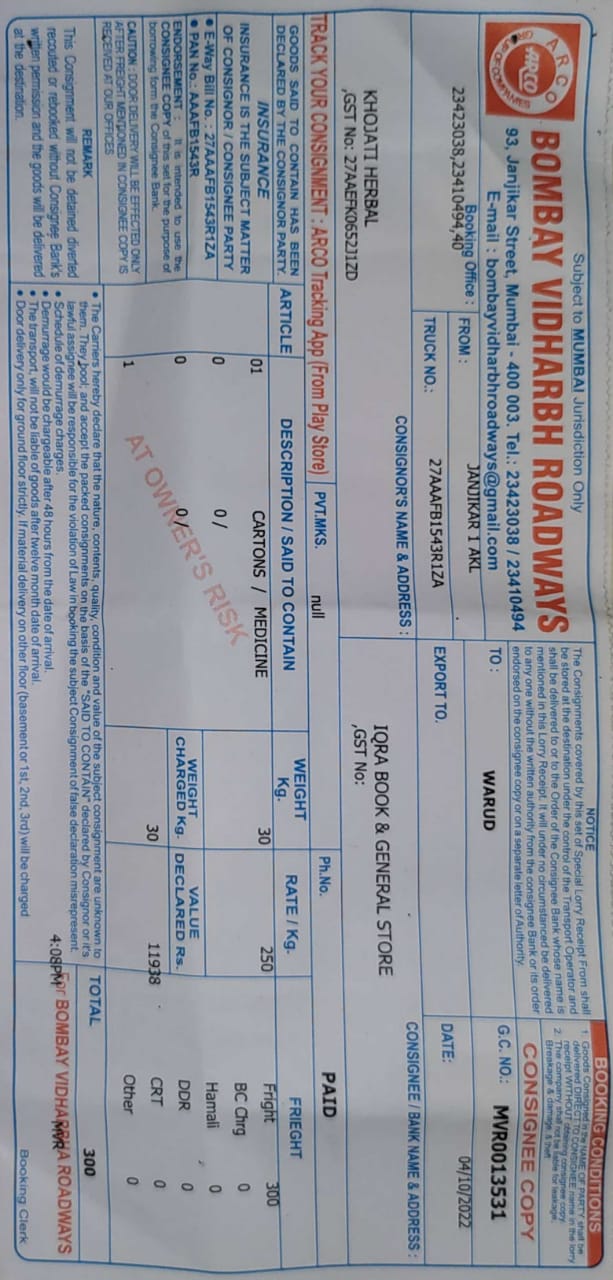 Subject to MUMBAI Jurisdiction Only
ARCO
ARCO
GR OF COMPANIES
BOMBAY VIDHARBH ROADWAYS
93, Janjikar Street, Mumbai - 400 003. Tel.: 23423038 / 23410494
E-mail : bombayvidharbhroadways@gmail.com
NOTICE
The Consignments covered by this set of Special Lorry Receipt From shall
be stored at the destination under the control of the Transport Operator and
shall be delivered to or to the Order of the Consignee Bank whose name is
mentioned in this Lorry Receipt. It will under no circumstanced be delivered
to any one without the written authority from the consignee Bank or its order
endorsed on the consignee copy or on a separate letter of Authority.
BOOKING CONDITIONS
1. Goods Consigned in the NAME OF PARTY shall be
delivered DIRECT TO CONSIGNEE name in the lorry
receipt WITHOUT obtaining consignee copy.
2. The company shall not be liable for leakage,
Breakage & damage, & theft
CONSIGNEE COPY
Booking Office :
23423038,23410494,40
FROM :
JANJIKAR 1 AKL
TO :
WARUD
G.C. NO.: MVR0013531
TRUCK NO.: 27AAAFB1543R1ZA
EXPORT TO.
DATE: 04/10/2022
CONSIGNOR'S NAME & ADDRESS :
KHOJATI HERBAL
,GST No: 27AAEFK0652J1ZD
CONSIGNEE / BANK NAME & ADDRESS :
IQRA BOOK & GENERAL STORE
,GST No:
TRACK YOUR CONSIGNMENT : ARCO Tracking App (From Play Store)
PVT.MKS. null
Ph.No.
PAID
GOODS SAID TO CONTAIN HAS BEEN
DECLARED BY THE CONSIGNOR PARTY.
INSURANCE
INSURANCE IS THE SUBJECT MATTER
OF CONSIGNOR / CONSIGNEE PARTY
• E-Way Bill No.: 27AAAFB1543R1ZA
• PAN No.: AAAFB1543R
ENDORSEMENT : It is intended to use the
CONSIGNEE COPY of this set for the purpose of
borrowing form the Consignee Bank.
CAUTION : DOOR DELIVERY WILL BE EFFECTED ONLY
AFTER FREIGHT MENTIONED IN CONSIGNEE COPY IS
RECEIVED AT OUR OFFICES
REMARK
This Consignment will not be detained diverted
recouted or rebooked without Consignee Bank's
written permission and the goods will be delivered
at the destination.
ARTICLE DESCRIPTION / SAID TO CONTAIN WEIGHT Kg. RATE / Kg. FRIEGHT
01 CARTONS / MEDICINE 30 250 Fright 300
BC Chrg 0
0 0 / Hamali 0
WEIGHT CHARGED Kg. VALUE DECLARED Rs.
0 0 / DDR 0
30 11938 CRT 0
1 Other 0
AT OWNER'S RISK
TOTAL 300
• The Carriers hereby declare that the nature, contents, quality, condition and value of the subject consignment are unknown to
them. They bool; and accept the packed consignments on the basis of the "SAID TO CONTAIN" declared by Consignor or it's
lawful assignee will be responsible for the violation of Law in booking the subject Consignment of false declaration misrepresent.
• Schedule of demurrage charges.
• Demurrage would be chargeable after 48 hours from the date of arrival.
• The transport, will not be liable of goods after twelve month date of arrival.
• Door delivery only for ground floor strictly. If material delivery on other floor (basement or 1st, 2nd, 3rd) will be charged
For BOMBAY VIDHARBHA ROADWAYS
4:08PM MVR
Booking Clerk